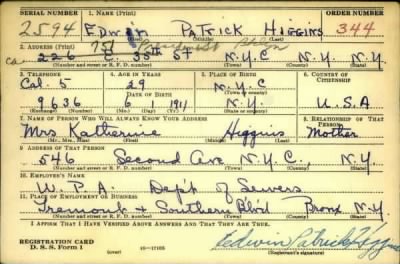 SERIAL NUMBER 1. NAME (Print) ORDER NUMBER
2594 Edwin PATRICK HIGGINS 344
(First) (Middle) (Last)
2. ADDRESS (Print)
226 E. 35th ST N.Y.C N.Y.
(Number and street or R. F. D. number) (Town) (County) (State)
3. TELEPHONE 4. AGE IN YEARS 5. PLACE OF BIRTH 6. COUNTRY OF CITIZENSHIP
Cal. 5 29 N.Y.C
DATE OF BIRTH (Town or county)
9636 6 1 1911 N.Y. U.S.A
(Exchange) (Number) (Mo.) (Day) (Yr.) (State or country)
7. NAME OF PERSON WHO WILL ALWAYS KNOW YOUR ADDRESS 8. RELATIONSHIP OF THAT PERSON
Mrs Katherine Higgins Mother
(Mr., Mrs., Miss) (First) (Middle) (Last)
9. ADDRESS OF THAT PERSON
546 Second Ave N.Y.C., N.Y.
(Number and street or R. F. D. number) (Town) (County) (State)
10. EMPLOYER'S NAME
W.P.A. Dep't of Sewers
11. PLACE OF EMPLOYMENT OR BUSINESS
Tremont & Southern Blvd Bronx N.Y.
(Number and street or R. F. D. number) (Town) (County) (State)
I AFFIRM THAT I HAVE VERIFIED ABOVE ANSWERS AND THAT THEY ARE TRUE.
REGISTRATION CARD
D. S. S. Form 1 (over) 16—17105 Edwin Patrick Higgins
(Registrant's signature)